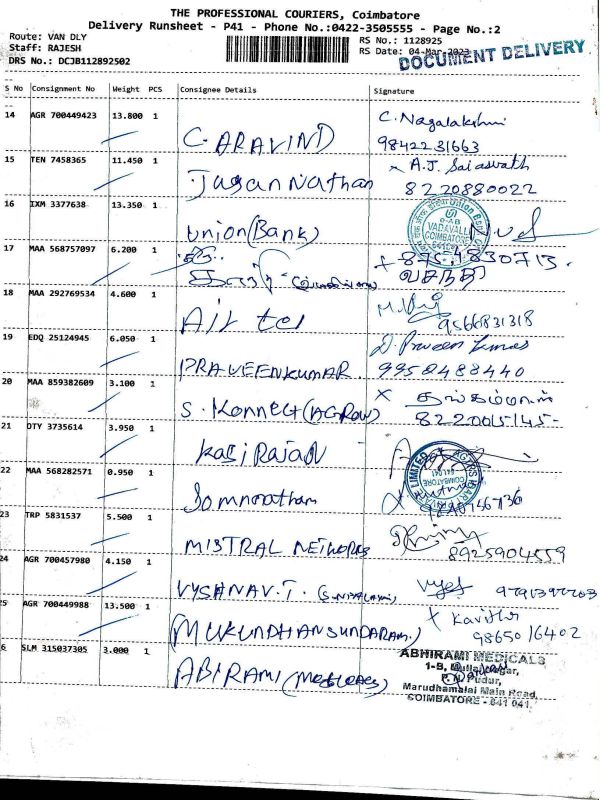 THE PROFESSIONAL COURIERS, Coimbatore
Delivery Runsheet - P41 - Phone No.:0422-3505555 - Page No.:2
Route: VAN DLY
Staff: RAJESH
DRS No.: DCJB112892502
RS No.: 1128925
RS Date: 04-Mar-2023
DOCUMENT DELIVERY
S No Consignment No Weight PCS Consignee Details Signature
14 AGR 700449423 13.800 1
C. ARAVIND
C. Nagalakshmi
9842231663
15 TEN 7458365 11.450 1
Jagannathan
x A.J. Saiaswath
8220880022
16 IXM 3377638 13.350 1
Union (Bank)
VADAVALLI
COIMBATORE
17 MAA 568757097 6.200 1
வசந்தி
18 MAA 292769534 4.600 1
Airtel
9566831318
19 EDQ 25124945 6.050 1
PRAVEENKUMAR
D. Praveen Kumar
9958488440
20 MAA 859382609 3.100 1
S. Konnect (AGROW)
x
8220015145
21 DTY 3735614 3.950 1
Kasi Rajan
22 MAA 568282571 0.950 1
Somnatham
LIMITED
COIMBATORE
23 TRP 5831537 5.500 1
MISTRAL NETWORKS
8925904559
24 AGR 700457980 4.150 1
VYSHNAV.T.
25 AGR 700449988 13.500 1
(MUKUNDHAN SUNDARAM)
x Kavitha
9865016402
26 SLM 315037305 3.000 1
ABIRAMI (Medicals)
ABHIRAMI MEDICALS
1-B, Mullai Nagar,
P.N. Pudur,
Marudhamalai Main Road,
COIMBATORE - 641 041.